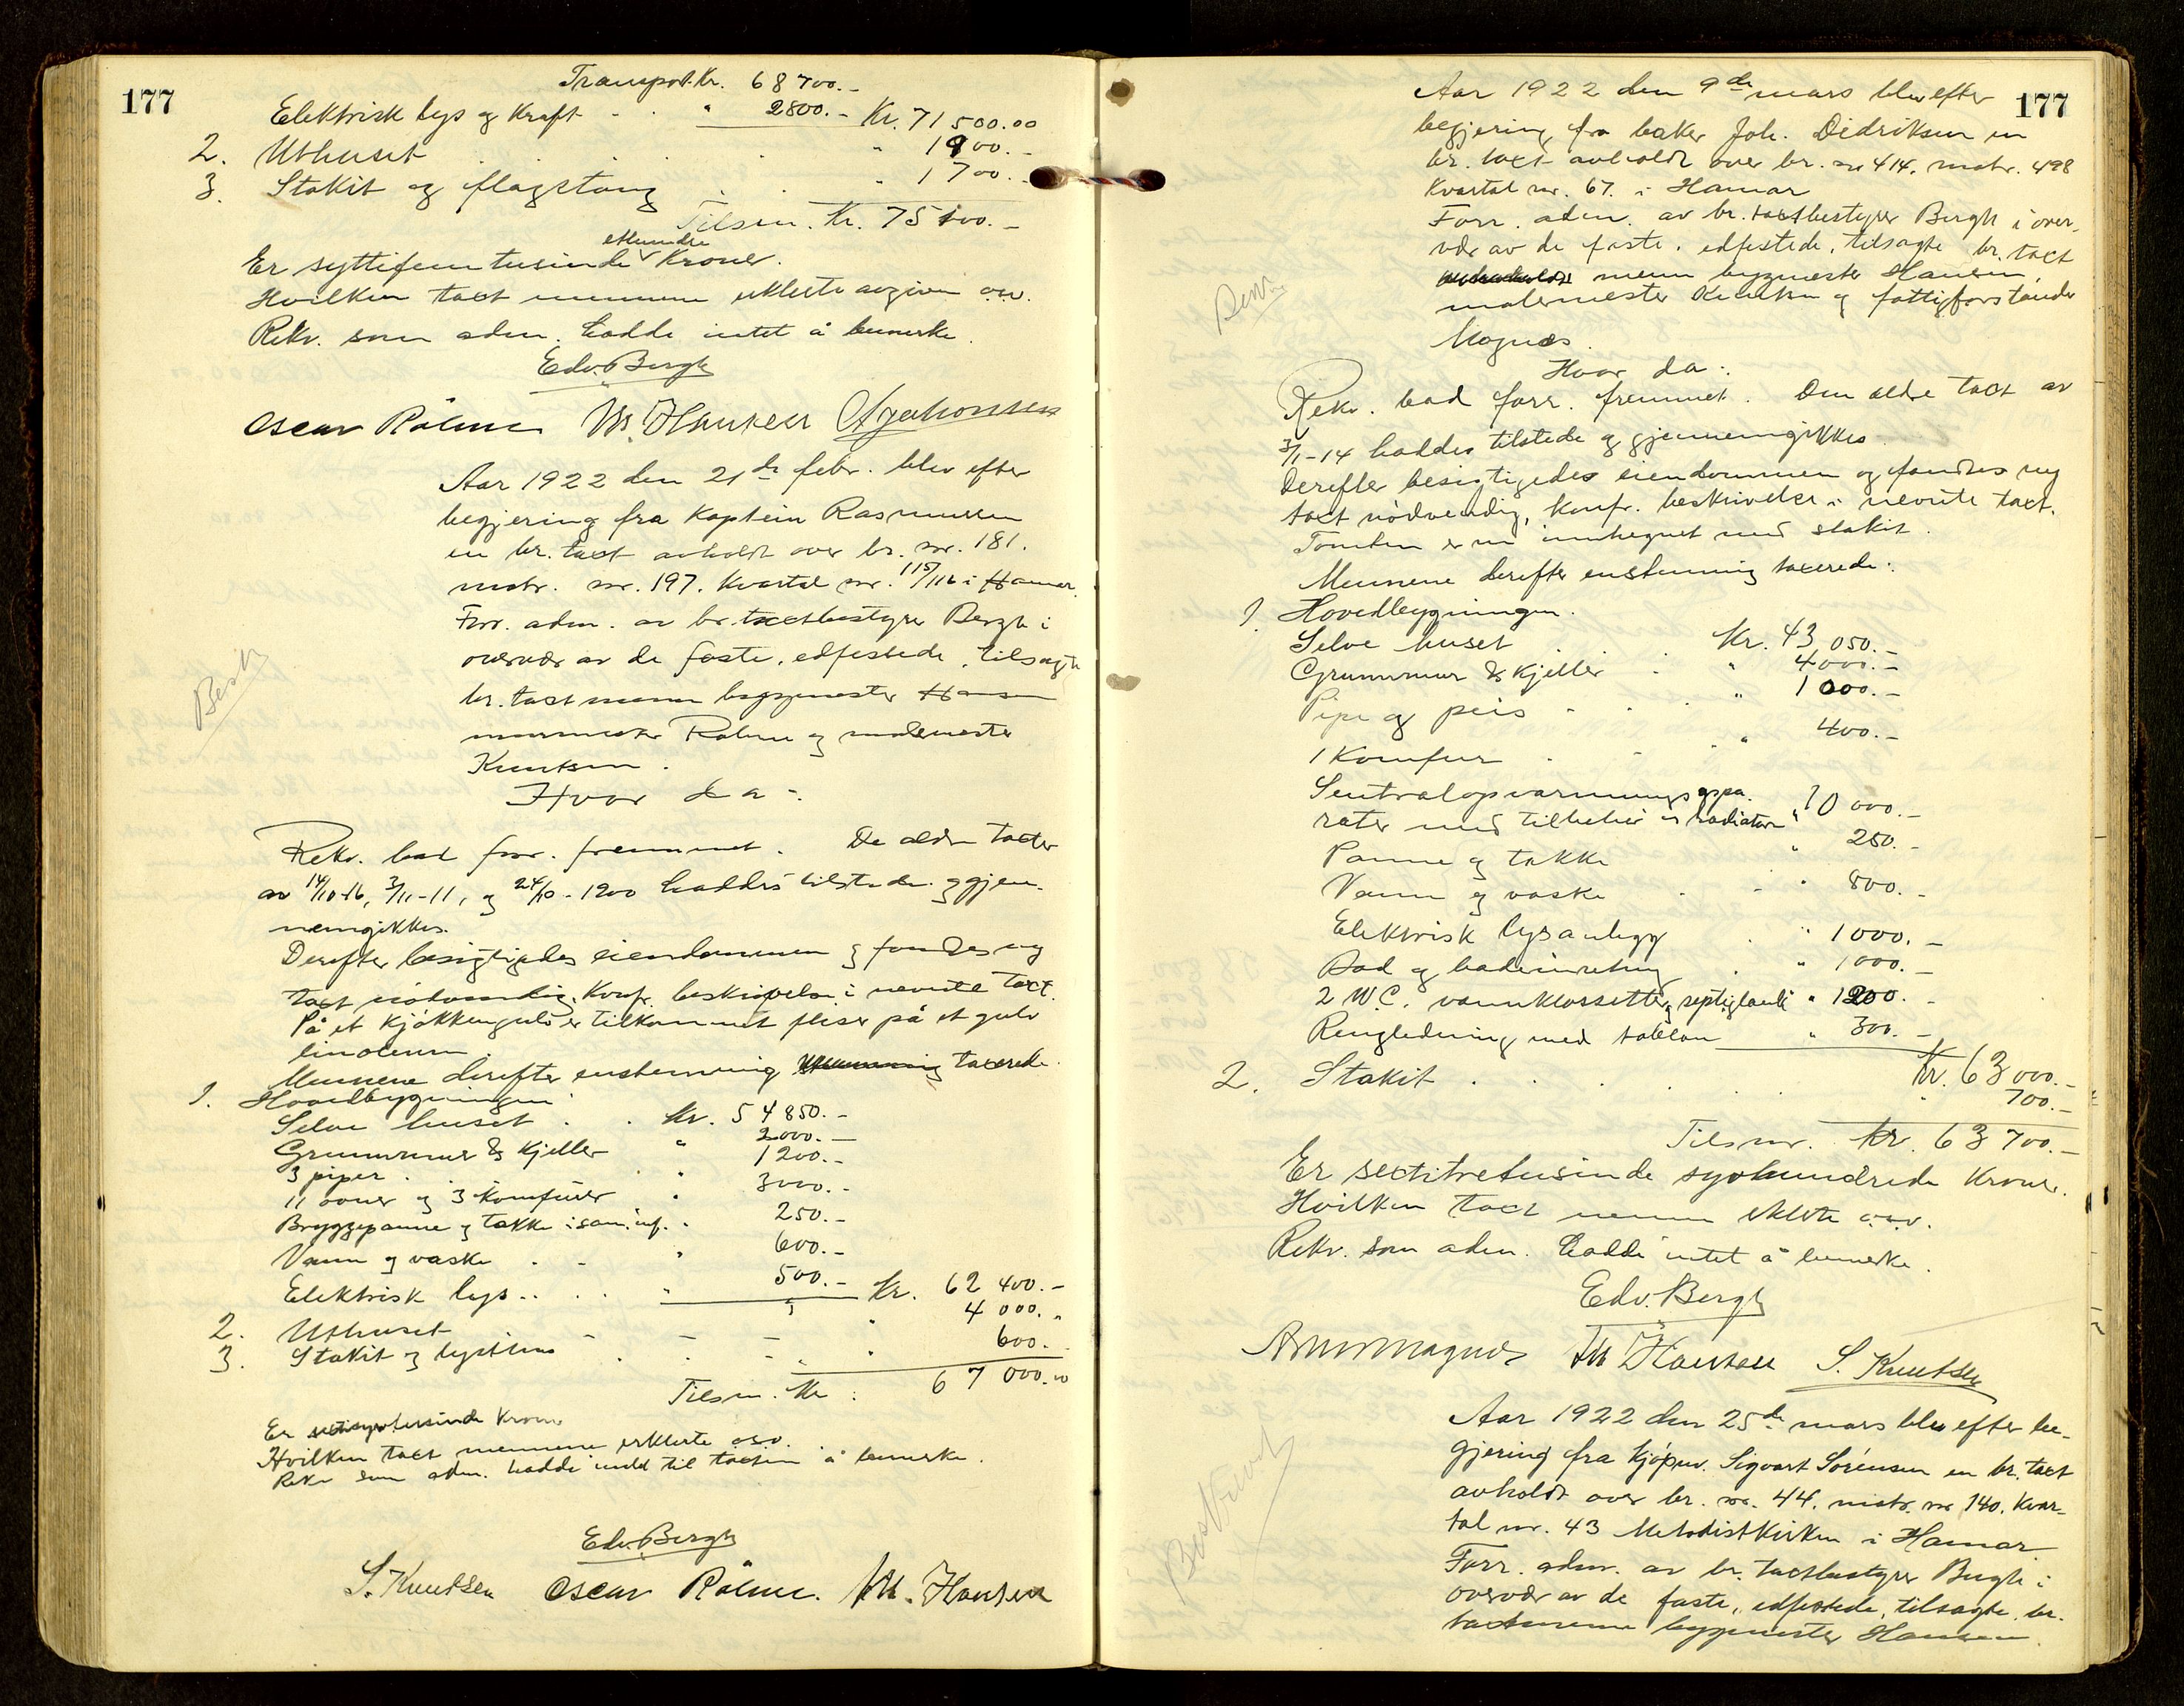 177
Transport. Kr. 68700.-
Elektrisk lys og Kraft - . " 2800.- Kr. 71500.00
2. Uthuset . . . . " 1900.-
3. Stakit og flagstang . . " 1700.-
Tilsm. Kr. 75100.-
ethundre
Er syttifemtusinde Kroner.
Hvilken taxt mennene erklerte avgiven osv.
Rekv. som adm. hadde intet å bemerke.
Edv. Bergh
Oscar Rolme M. Hansen
Aar 1922 den 21de febr. blev efter
begjering fra Kaptein Rasmussen
en br. taxt avholdt over br. nr. 181.
matr. nr. 197. Kvartal nr. 115/116 i Hamar.
Forr. adm. av br. taxtbestyrer Bergh i
overvær av de faste, edfestede, tilsagte
br. taxtmenn byggmester Hansen
murmester Rolme og malermester
Knutsen.
Hvor da:
Rekv. bad forr. fremmet. De eldre taxter
av 14/10-16, 3/11-11, og 24/10-1900 haddes tilstede og gjen-
nemgikkes.
Derefter besigtigedes eiendommen og fandtes ny
taxt nødvendig. Konfr. beskrivelse i nevnte taxt.
På et kjøkkengulv er tilkommet fliser på et gulv
linoleum.
Mennene derefter enstemmig taxerede.
1. Hovedbygningen:
Selve huset . . Kr. 54850.-
Grunnmur & Kjeller " 2000.-
3 piper . . " 1200.-
11 ovner og 3 komfürer " 3000.-
Bryggepanne og takke i sam. inf. . 250.-
Vann og vaske . - " 600.-
Elektrisk lys .. . . " 500.- Kr. 62400.-
2. Uthuset - - - " 4000.-
3. Stakit og . . - " 600.-
Tilsm. Kr. 67000.00
Er sextisyvtusinde Kroner
Hvilken taxt mennene erklerte osv.
Rekv. som adm. hadde intet til taxten å bemerke.
Edv. Bergh
S. Knutsen Oscar Rolme. M. Hansen
177
Aar 1922 den 9de mars blev efter
begjering fra baker Joh. Didriksen en
br. taxt avholdt over br. nr 414. matr. 498
Kvartal nr. 67. i Hamar
Forr. adm. av br. taxtbestyrer Bergh i over-
vær av de faste, edfestede, tilsagte br. taxt
menn bygmester Hansen,
malermester Knutsen og fattigforstander
Magnæs.
Hvor da:
Rekv. bad forr. fremmet. Den eldre taxt av
3/1-14 haddes tilstede og gjennemgikkes.
Derefter besigtigedes eiendommen og fandtes ny
taxt nødvendig, konfr. beskrivelse i nevnte taxt.
Tomten er nu innhegnet med stakit.
Mennene derefter enstemmig taxerede:
1. Hovedbygningen.
Selve huset . Kr. 43050.-
Grunnmur & Kjeller . " 4000.-
Pipe og peis - . . " 1000.-
1 Komfur . - . " 400.-
Sentralopvarmningsappa-
rater med tilbehør og radiator " 10000.-
Panne og takke " 250.-
Vann og vaske . - " 800.-
Elektrisk lysanlegg . " 1000.-
Bad og badeinretning . " 1000.-
2 W.C. vannklossetter og septigtank " 1200.-
Ringledning med tablau " 300.-
Kr. 63000.-
2. Stakit . . . . . " 700.-
Tilsm. Kr. 63700.-
Er sextitretusinde syvhundrede Kroner.
Hvilken taxt mennene erklerte osv.
Rekv. som adm. hadde intet å bemerke.
Edv. Bergh
Magnæs M Hansen S. Knutsen
Aar 1922 den 25de mars blev efter be-
gjering fra kjøpm. Sigvart Sørensen en br. taxt
avholdt over br. nr. 44. matr. nr 140. Kvar-
tal nr. 43 Metodistkirken i Hamar.
Forr. adm. av br. taxtbestyrer Bergh i
overvær av de faste, edfestede, tilsagte br.
taxtmenn bygmester Hansen.